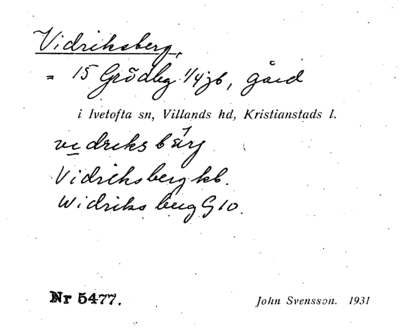 Vidriksberg,
= 15 Grödby 1/4 jb, gård
i Ivetofta sn, Villands hd, Kristianstads l.
vidriksbärj
Vidriksberg kb.
Widriksberg G 10.
Nr 5477.
John Svensson. 1931